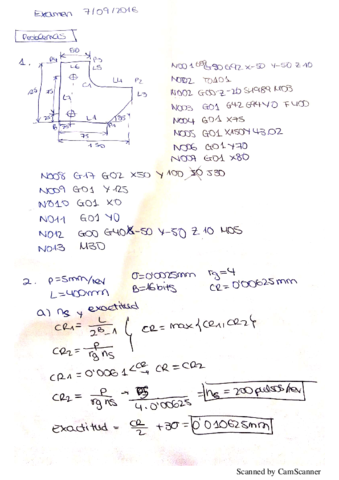 Examen 7/09/2016
PROBLEMAS
1.
50
P4 P3
L6 L5
C1 L4 P2
L3
L7
L1 P1
75
150
N002 T0101
N003 G01 G42 G94 Y0 F400
N004 G01 X75
N005 G01 X150 Y43.02
N006 G01 Y70
N007 G01 X80
N008 G17 G02 X50 Y100
N009 G01 Y125
N010 G01 X0
N011 G01 Y0
N012 G00 G40 X-50 Y-50 Z10 M05
N013 M30
2. P=5mm/rev σ=0'0025mm rg=4
L=400mm B=16bits CR=0'00625mm
a) ns y exactitud
CR1 = L / 2^B - 1
CR = max {CR1, CR2}
CR2 = P / rg ns
CR1 = 0'0061 < CR → CR = CR2
CR2 = P / rg ns → 5 / 4·0'00625 = ns = 200 pulsos/rev
exactitud = CR/2 + 3σ = 0'010625mm
Scanned by CamScanner